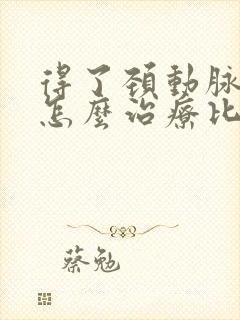 得了頚動脉
怎麼治療比
蔡勉